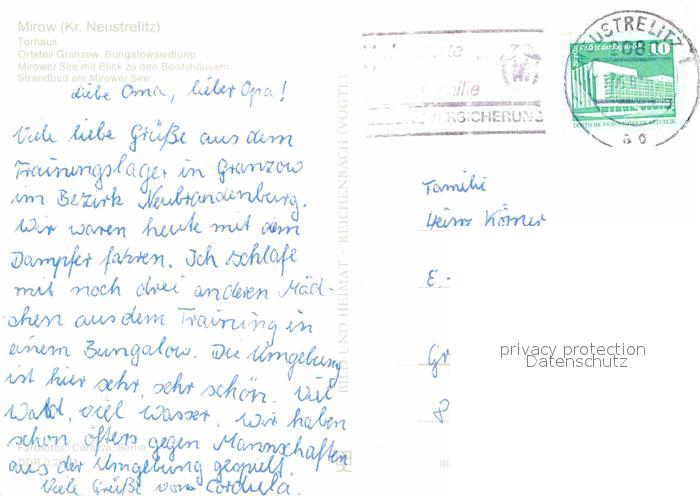 Mirow (Kr. Neustrelitz)
Torhaus
Ortsteil Granzow, Bungalowsiedlung
Mirower See mit Blick zu den Bootshäusern
Strandbad am Mirower See
Liebe Oma, lieber Opa!
Viele liebe Grüße aus dem
Trainingslager in Granzow
im Bezirk Neubrandenburg.
Wir waren heute mit dem
Dampfer fahren. Ich schlafe
mit noch drei anderen Mäd-
chen aus dem Training in
einem Bungalow. Die Umgebung
ist hier sehr, sehr schön. Viel
Wald, viel Wasser. Wir haben
schon öfters gegen Mannschaften
aus der Umgebung gespielt.
Viele Grüße von Cordula.
Farbfotos: Berlin
BILD UND HEIMAT · REICHENBACH (VOGTL)
VERSICHERUNG
NEUSTRELITZ 1
10
DEUTSCHE DEMOKRATISCHE REPUBLIK
Familie
Heinz Körner
E.-
Gr
8
privacy protection
Datenschutz